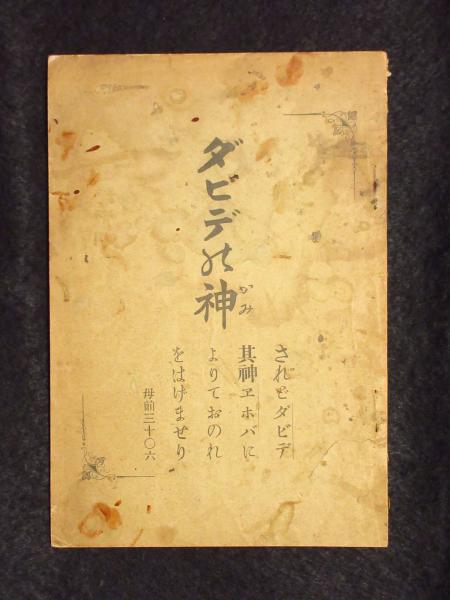 ダビデの神
かみ
されどダビデ
其神ヱホバに
よりておのれ
をはげませり
母前三十〇六